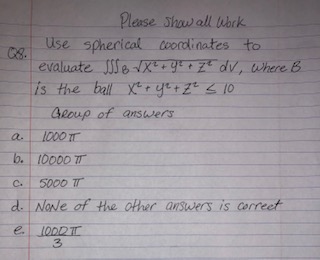 Please show all Work
Q8. Use spherical coordinates to
evaluate ∫∫∫B √x² + y² + z² dv, where B
is the ball x² + y² + z² ≤ 10
Group of answers
a. 1000 π
b. 10000 π
c. 5000 π
d. None of the other answers is correct
e. 1000 π
3